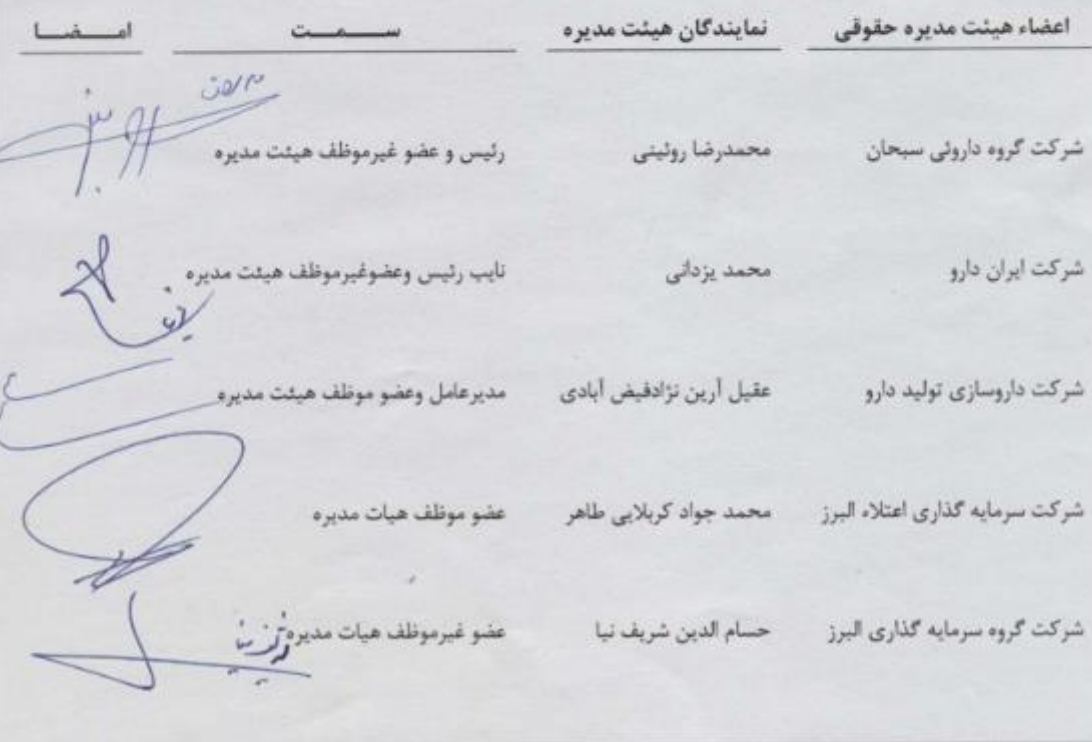 اعضاء هیئت مدیره حقوقی نمایندگان هیئت مدیره سمت امضا
شرکت گروه داروئی سبحان محمدرضا روئینی رئیس و عضو غیرموظف هیئت مدیره
شرکت ایران دارو محمد یزدانی نایب رئیس وعضوغیرموظف هیئت مدیره
شرکت داروسازی تولید دارو عقیل آرین نژادفیض آبادی مدیرعامل وعضو موظف هیئت مدیره
شرکت سرمایه گذاری اعتلاء البرز محمد جواد کربلایی طاهر عضو موظف هیات مدیره
شرکت گروه سرمایه گذاری البرز حسام الدین شریف نیا عضو غیرموظف هیات مدیره